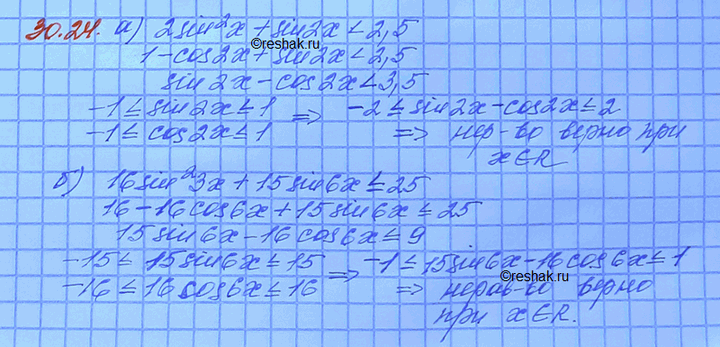 30.24. а) 2sin²x + sin2x < 2,5
©reshak.ru
1 - cos2x + sin2x < 2,5
sin2x - cos2x < 3,5
-1 ≤ sin2x ≤ 1 ⇒ -2 ≤ sin2x - cos2x ≤ 2
-1 ≤ cos2x ≤ 1 ⇒ нер-во верно при
x∈R
б) 16sin²3x + 15sin6x ≤ 25
16 - 16cos6x + 15sin6x ≤ 25
15sin6x - 16cos6x ≤ 9
-15 ≤ 15sin6x ≤ 15 ⇒ -1 ≤ 15sin6x - 16cos6x ≤ 1
©reshak.ru
-16 ≤ 16cos6x ≤ 16 ⇒ нерав-во верно
при x∈R.